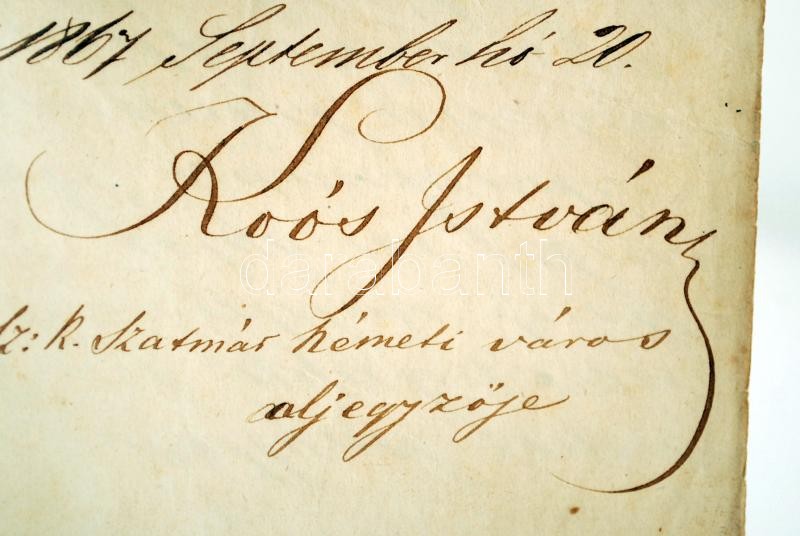 1867 September hó 20.
Koós István
sz: k. Szatmár Németi város
aljegyzője
darabanth